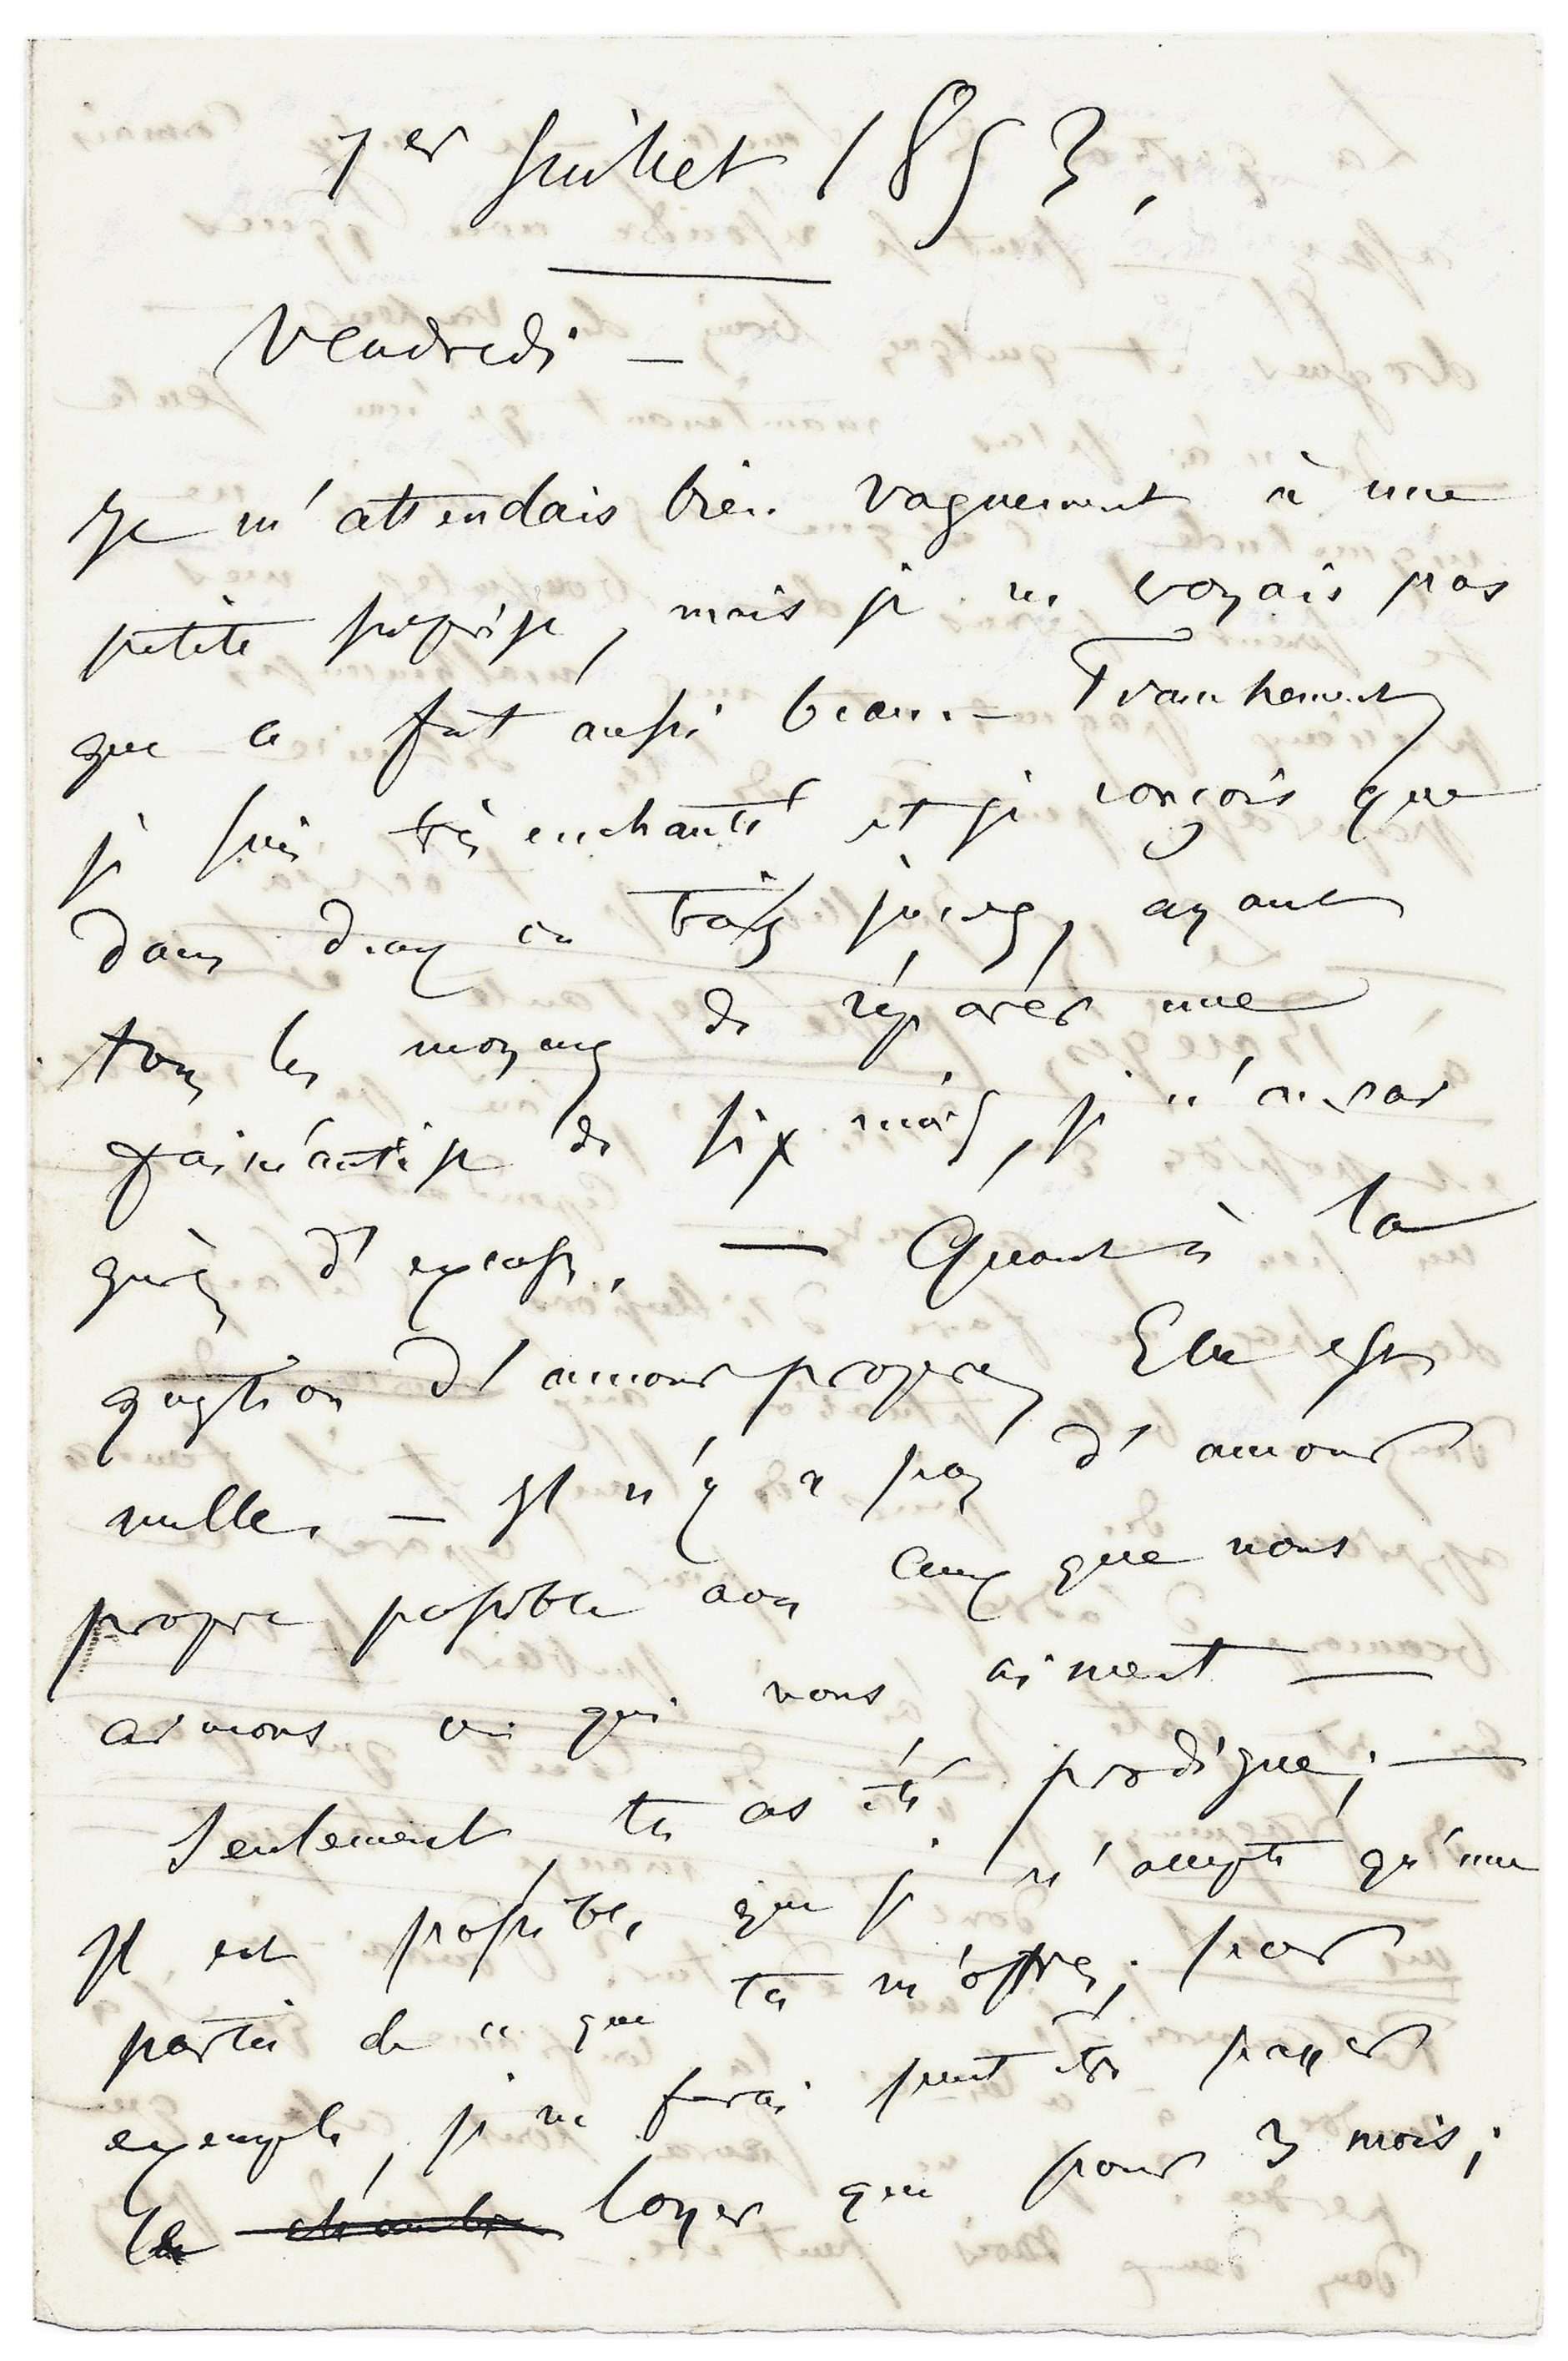 1er Juillet 1853.
Vendredi —
Je m'attendais bien vaguement à une
petite surprise, mais je ne croyais pas
que ce fût aussi beau. — Franchement,
je suis très enchanté et je conçois que
dans deux ou trois jours, ayant
tous les moyens de réparer une
fainéantise de six mois, je n'aurai
guères d'excuse. — Quant à la
question d'amour propre, Elle est
nulle. — Il n'y a pas d'amour
propre possible avec ceux que nous
aimons ou qui nous aiment —
Seulement, tu as été prodigue; —
Il est possible que je n'accepte qu'une
partie de ce que tu m'offres; par
exemple, je ne ferai peut être payer
le chambre loyer que pour 3 mois;